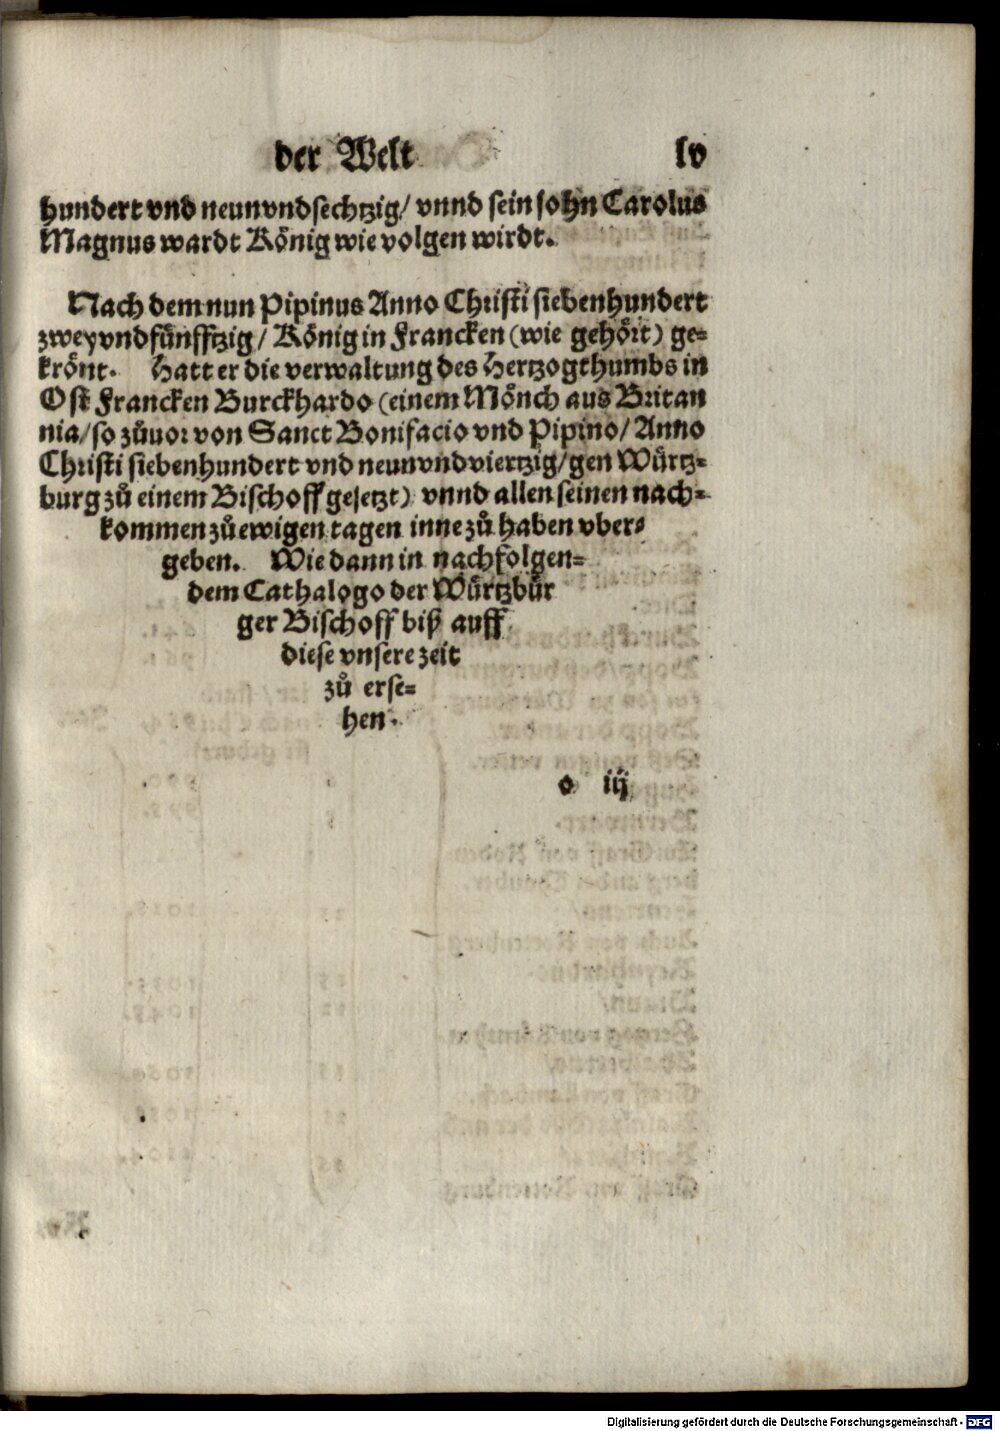 der Welt lv
hundert vnd neunvndsechtzig/ vnnd sein sohn Carolus
Magnus wardt König wie volgen wirdt.
Nach dem nun Pipinus Anno Christi siebenhundert
zweyvndfünfftzig/ König in Francken (wie gehört) ge=
krönt. Hatt er die verwaltung des Hertzogthumbs in
Ost Francken Burckhardo (einem Mönch aus Britan
nia/ so zůuor von Sanct Bonifacio vnd Pipino/ Anno
Christi siebenhundert vnd neunvndviertzig/ gen Würtz=
burg zů einem Bischoff gesetzt) vnnd allen seinen nach=
kommen zů ewigen tagen inne zů haben vber=
geben. Wie dann in nachfolgen=
dem Cathalogo der Würtzbür
ger Bischoff biß auff
diese vnsere zeit
zů erse=
hen.
o iij
Digitalisierung gefördert durch die Deutsche Forschungsgemeinschaft - DFG